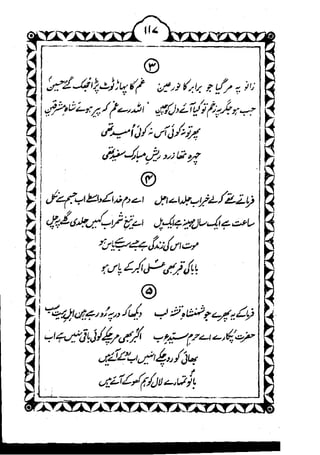 ۱۱۷
۳
زانو پہ مر گیا جو برابر کا نورِ عین غم کا پہاڑ ٹوٹ پڑا جھک گئے حسین
جب ہو جگر پہ غم تو کیا آئے دل کو چین اللہ رے غم کہ پیر ہوئے شاہِ مشرقین
پھر تو نہ کوئی آس نہ کوئی اُمید تھی
چہرہ تھا زرد ریشِ مبارک سفید تھی
۴
فرماتے تھے کہ لے خبر اب جلد اے اجل اے دم خدا کے واسطے اب جسم سے نکل
ساعت ہے ایک سال مہینہ ہے ایک پل اے تیغِ شمر اب کہیں جلدی گلے پہ چل
موت اس کی زندگی ہے جسے یاس ہو
بابا کی قبر بھی علی اکبر کے پاس ہو
۵
فرما کے یہ پھرے جو شہنشاہِ تشنہ لب دیکھا کہ در پہ رو رہے ہیں اہلِ بیت سب
حضرت پکارے اے حرمِ سیدِ عرب اکبر بھی مر چکے کوئی باقی نہیں ہے اب
بھائی کو رو چکے انہیں اب رو کے آئے ہیں
بانو تمہارے لال کو ہم کھو کے آئے ہیں